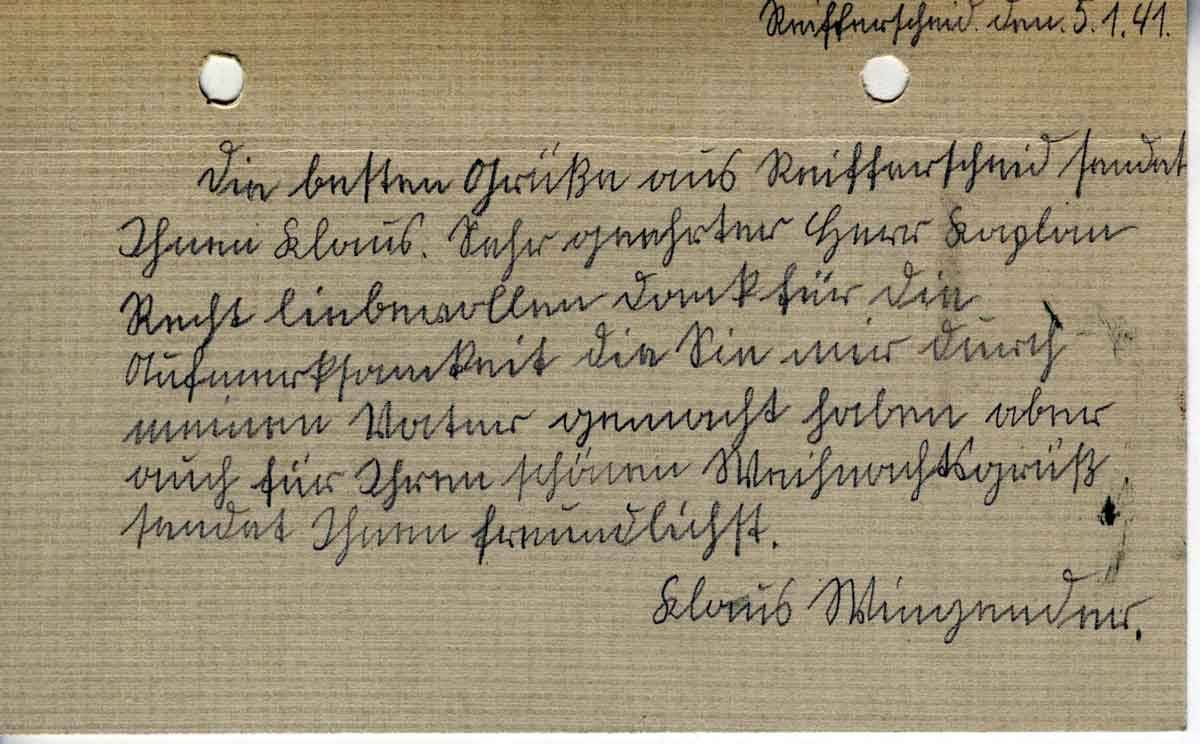 Reifferscheid. den. 5.1.41.
Die besten Grüße aus Reifferscheid sendet
Ihnen Klaus. Sehr geehrter Herr Kaplan
Recht liebevollen Dank für die
Aufmerksamkeit die Sie mir durch
meinen Vater gemacht haben aber
auch für Ihren schönen Weihnachtsgrüß
sendet Ihnen freundlichst.
Klaus Wingender.